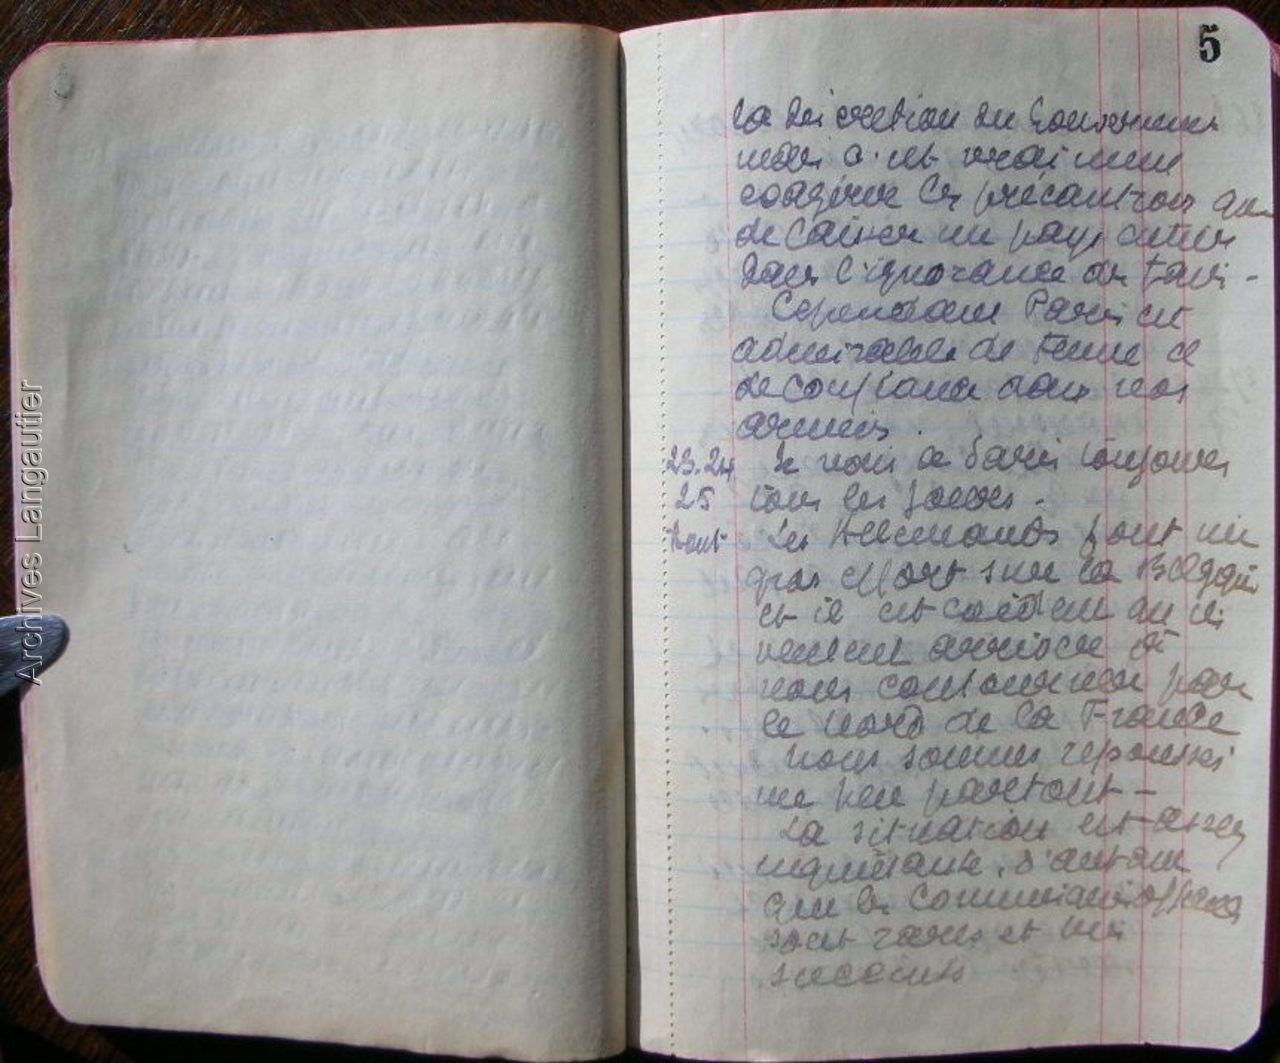 Archives Langautier
5
la discretion du Gouvernemen
mais c'est vraiment
exagérer les précautions que
de laisser un pays entier
dans l'ignorance des faits -
Cependant Paris est
admirable de tenue et
de confiance dans nos
armées.
23.24 Je vais à Paris toujours
25 tous les jours -
Aout Les Allemands font un
gros effort sur la Belgique
et il est certain qu'ils
veulent arriver à
nous contourner par
le Nord de la France
nous sommes repoussés
un peu partout -
La situation est assez
inquiétante, d'autant
que les Communiqués officiels
sont rares et très
succincts